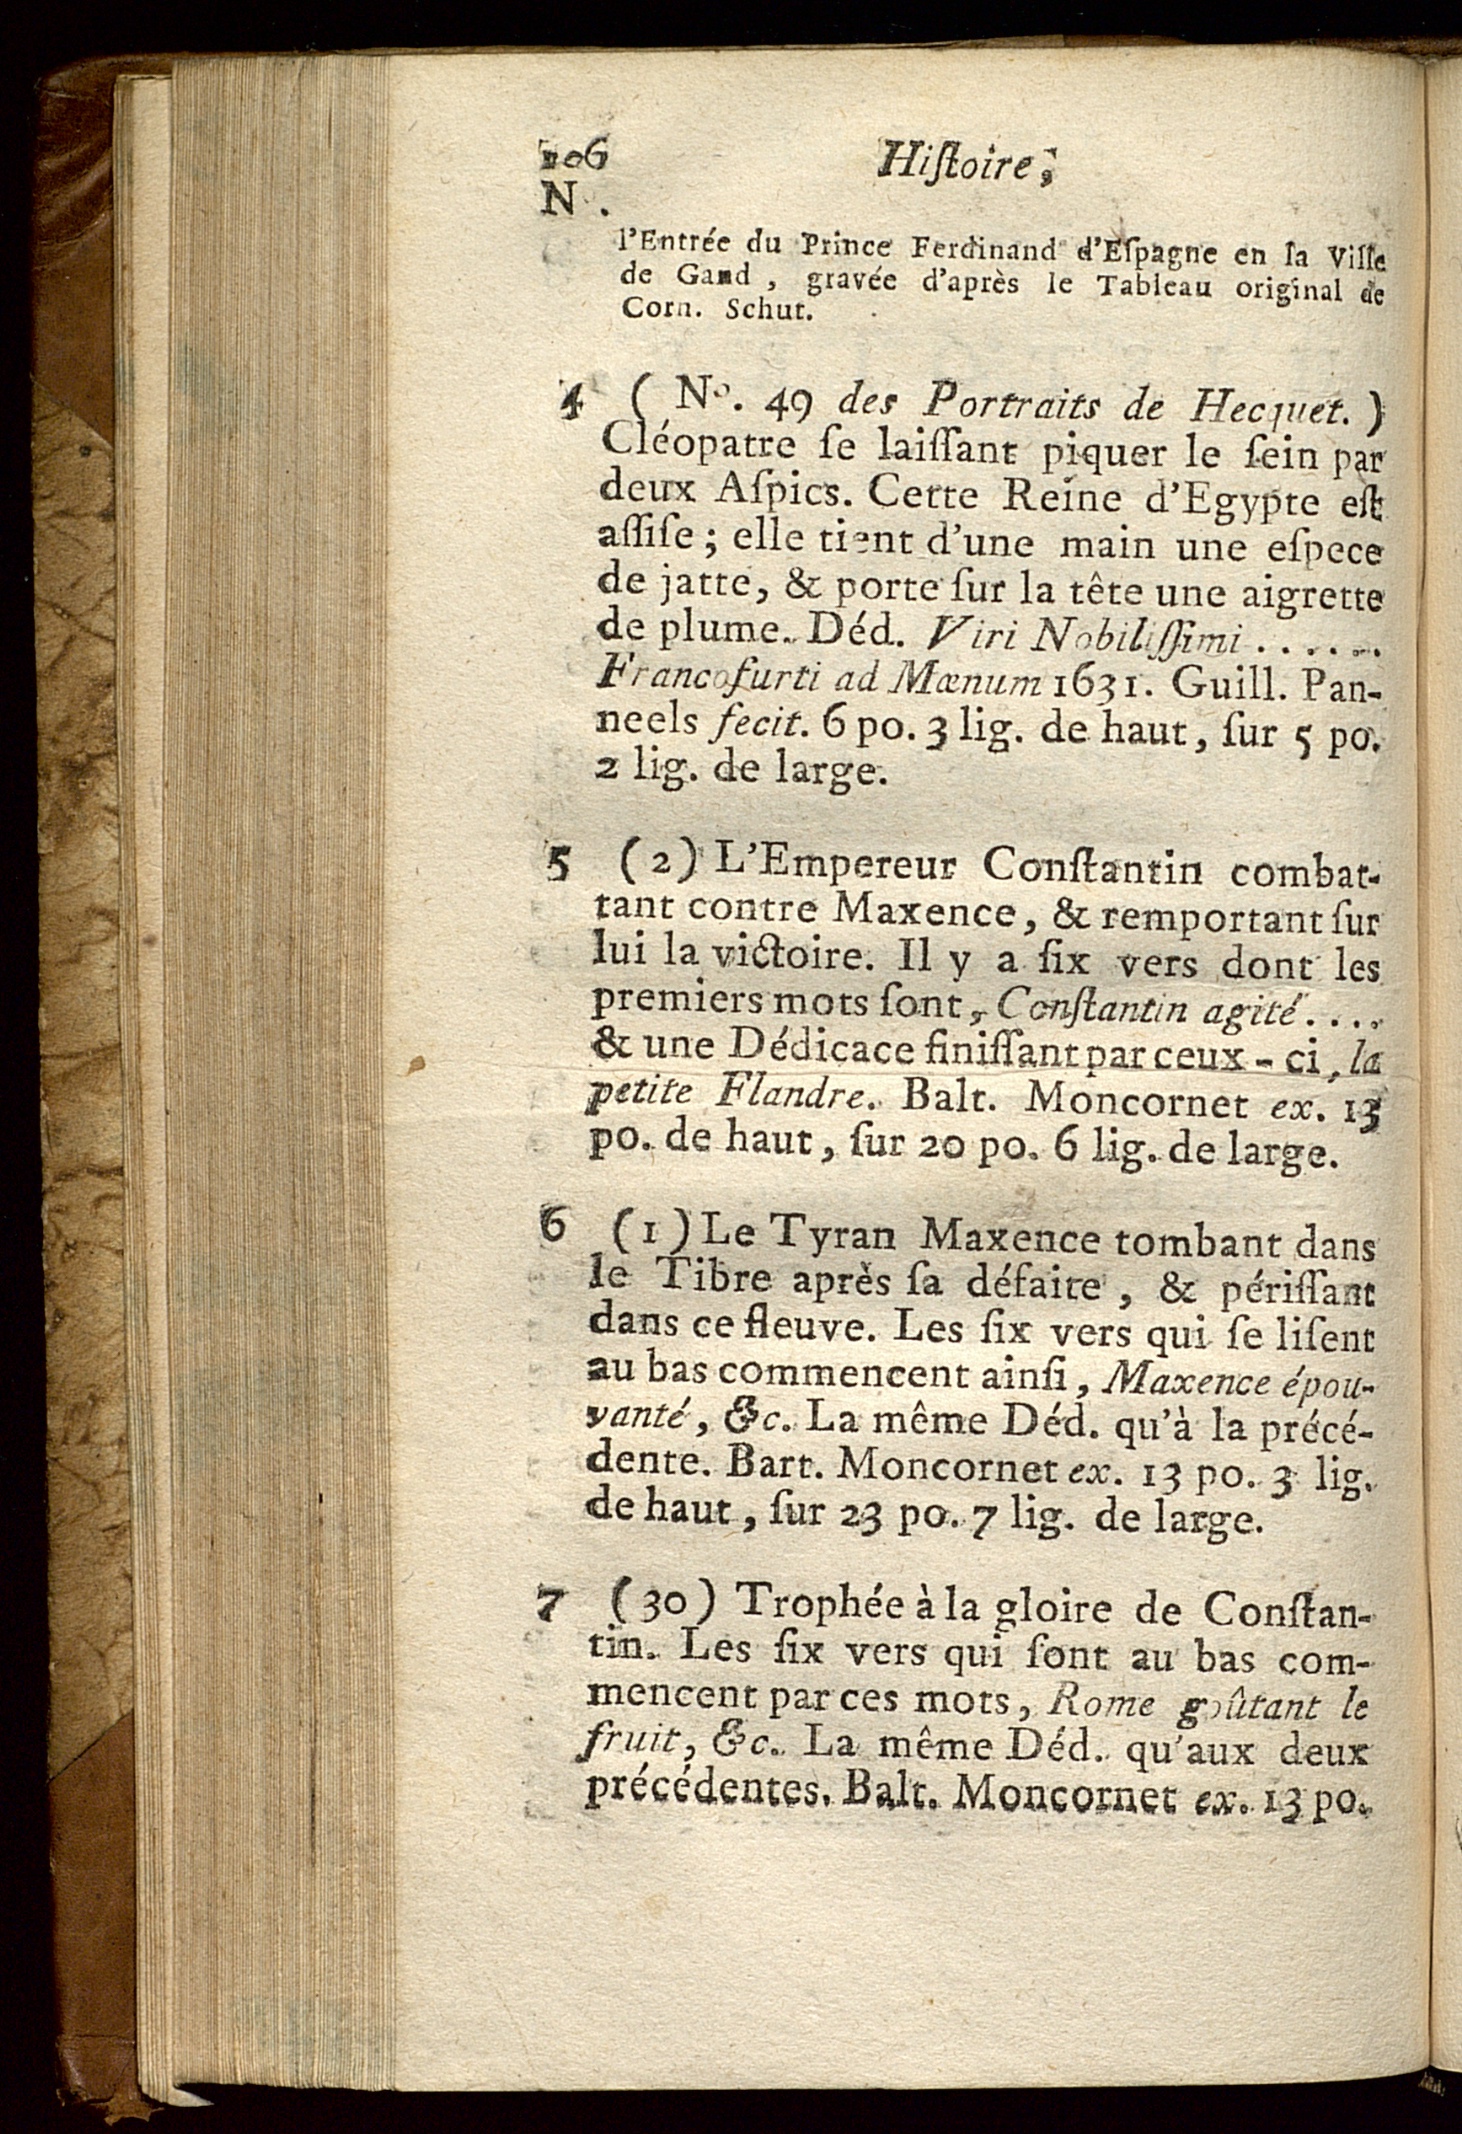 106 Hiſtoire,
N .
l'Entrée du Prince Ferdinand d'Eſpagne en la Ville
de Gand , gravée d'après le Tableau original de
Corn. Schut.
4 ( Nº. 49 des Portraits de Hecquet. )
Cléopatre ſe laiſſant piquer le ſein par
deux Aſpics. Cette Reine d'Egypte eſt
aſſiſe ; elle tient d'une main une eſpece
de jatte, & porte ſur la tête une aigrette
de plume. Déd. Viri Nobiliſſimi . . . . . .
Francofurti ad Mœnum 1631. Guill. Pan-
neels fecit. 6 po. 3 lig. de haut, ſur 5 po.
2 lig. de large.
5 (2) L'Empereur Conſtantin combat-
tant contre Maxence, & remportant ſur
lui la victoire. Il y a ſix vers dont les
premiers mots ſont, Conſtantin agité . . . .
& une Dédicace finiſſant par ceux - ci, la
petite Flandre. Balt. Moncornet ex. 13
po. de haut, ſur 20 po. 6 lig. de large.
6 (1) Le Tyran Maxence tombant dans
le Tibre après ſa défaite , & périſſant
dans ce fleuve. Les ſix vers qui ſe liſent
au bas commencent ainſi, Maxence épou-
vanté, &c. La même Déd. qu'à la précé-
dente. Bart. Moncornet ex. 13 po. 3 lig.
de haut, ſur 23 po. 7 lig. de large.
7 (30) Trophée à la gloire de Conſtan-
tin. Les ſix vers qui ſont au bas com-
mencent par ces mots, Rome goûtant le
fruit, &c. La même Déd. qu'aux deux
précédentes. Balt. Moncornet ex. 13 po.